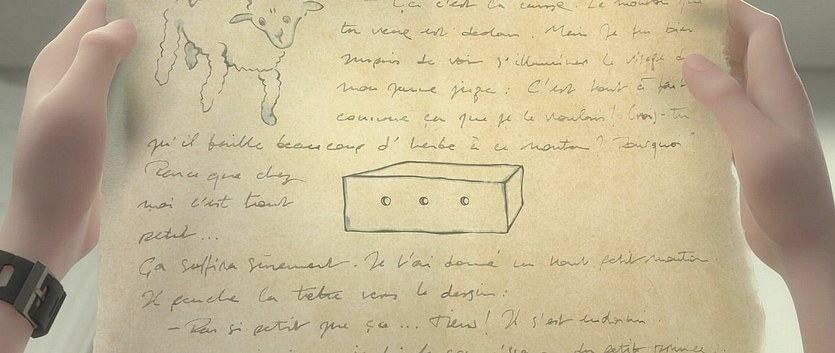 - Ça c'est la caisse. Le mouton que
tu veux est dedans. Mais je fus bien
surpris de voir s'illuminer le visage de
mon jeune juge : C'est tout à fait
comme ça que je le voulais! Crois-tu
qu'il faille beaucoup d'herbe à ce mouton? Pourquoi?
Parce que chez
moi c'est tout
petit...
Ça suffira sûrement. Je t'ai donné un tout petit mouton
Il pencha la tête vers le dessin:
- Pas si petit que ça... Tiens! Il s'est endormi
petit prince